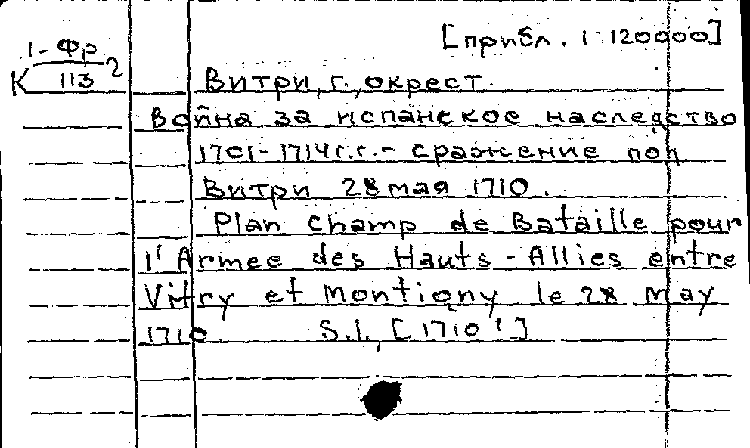 [прибл. 1:120000]
1-Фр
К 113 2
Витри, г., окрест.
Война за испанское наследство
1701-1714г.г.- сражение под
Витри 28 мая 1710.
Plan Champ de Bataille pour
l'Armee des Hauts-Allies entre
Vitry et Montigny le 28 May
1710. S.l., [1710']